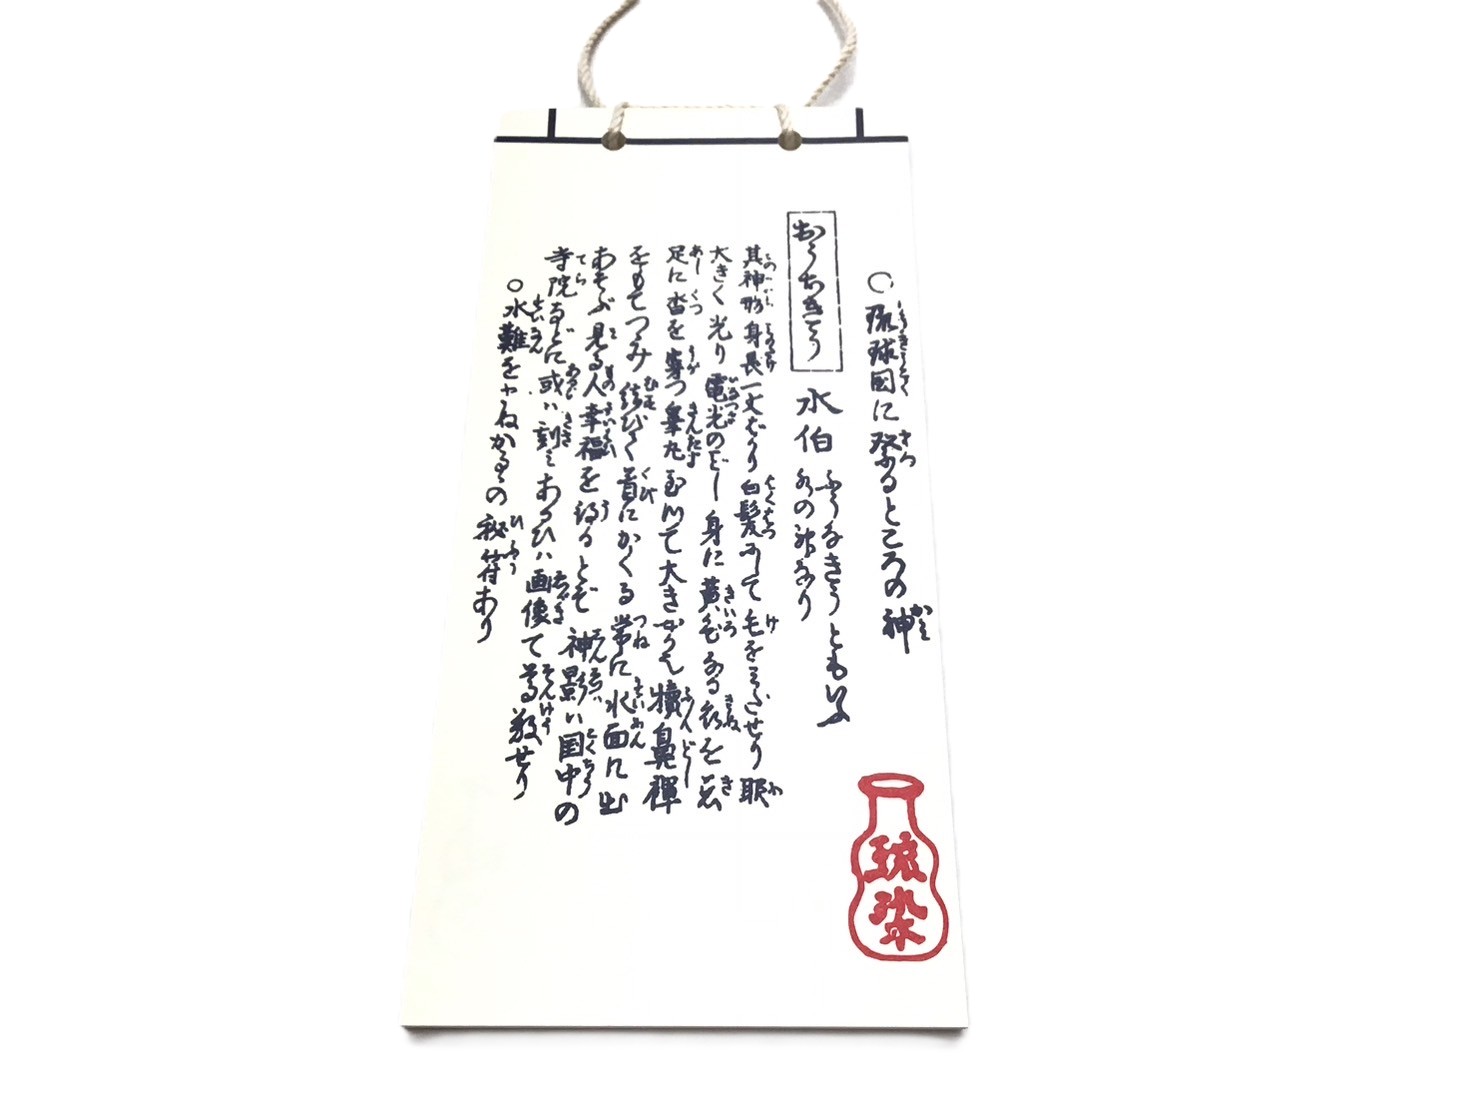 ○琉球国に祭るところの神
おうちきう
水伯
ふうちきうともいふ
水の神なり
其神形身長一丈ばかり白髪にして毛をみださせり眼
大きく光り電光のごとし身に黄色なる衣を
足に沓を穿つ睾丸 て大き 犢鼻褌
をもてつみ結びて首にかくる常に水面に出
あそぶ見る人幸福を得るとぞ神影ハ国中の
寺院などに或ハ刻みあるひハ画像て尊敬せり
○水難をまぬかるゝの秘符あり
琉染